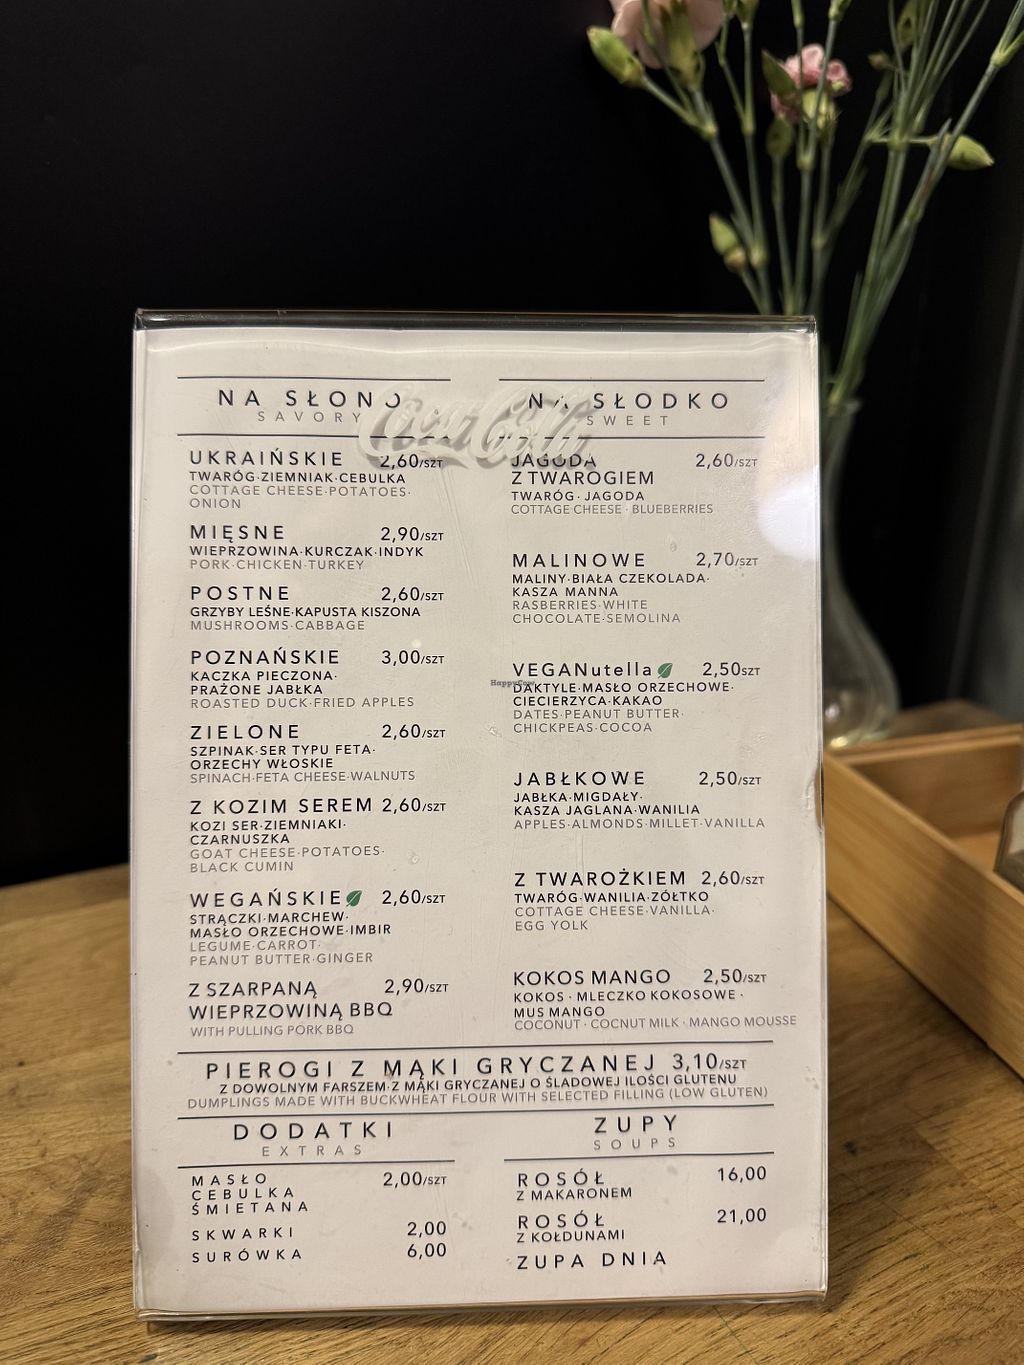 NA SŁONO
SAVORY
UKRAIŃSKIE 2,60/SZT
TWARÓG·ZIEMNIAK·CEBULKA
COTTAGE CHEESE·POTATOES·
ONION
MIĘSNE 2,90/SZT
WIEPRZOWINA·KURCZAK·INDYK
PORK·CHICKEN·TURKEY
POSTNE 2,60/SZT
GRZYBY LEŚNE·KAPUSTA KISZONA
MUSHROOMS·CABBAGE
POZNAŃSKIE 3,00/SZT
KACZKA PIECZONA·
PRAŻONE JABŁKA
ROASTED DUCK·FRIED APPLES
ZIELONE 2,60/SZT
SZPINAK·SER TYPU FETA·
ORZECHY WŁOSKIE
SPINACH·FETA CHEESE·WALNUTS
Z KOZIM SEREM 2,60/SZT
KOZI SER·ZIEMNIAKI·
CZARNUSZKA
GOAT CHEESE·POTATOES·
BLACK CUMIN
WEGAŃSKIE 2,60/SZT
STRĄCZKI·MARCHEW·
MASŁO ORZECHOWE·IMBIR
LEGUME·CARROT·
PEANUT BUTTER·GINGER
Z SZARPANĄ 2,90/SZT
WIEPRZOWINĄ BBQ
WITH PULLING PORK BBQ
Coca-Cola
NA SŁODKO
SWEET
JAGODA 2,60/SZT
Z TWAROGIEM
TWARÓG · JAGODA
COTTAGE CHEESE · BLUEBERRIES
MALINOWE 2,70/SZT
MALINY·BIAŁA CZEKOLADA·
KASZA MANNA
RASBERRIES·WHITE
CHOCOLATE·SEMOLINA
VEGANutella 2,50SZT
HappyCow
DAKTYLE·MASŁO ORZECHOWE·
CIECIERZYCA·KAKAO
DATES·PEANUT BUTTER·
CHICKPEAS·COCOA
JABŁKOWE 2,50/SZT
JABŁKA·MIGDAŁY·
KASZA JAGLANA·WANILIA
APPLES·ALMONDS·MILLET·VANILLA
Z TWAROŻKIEM 2,60/SZT
TWARÓG·WANILIA·ZÓŁTKO
COTTAGE CHEESE·VANILLA·
EGG YOLK
KOKOS MANGO 2,50/SZT
KOKOS · MLECZKO KOKOSOWE ·
MUS MANGO
COCONUT · COCNUT MILK · MANGO MOUSSE
PIEROGI Z MĄKI GRYCZANEJ 3,10/SZT
Z DOWOLNYM FARSZEM·Z MĄKI GRYCZANEJ O ŚLADOWEJ ILOŚCI GLUTENU
DUMPLINGS MADE WITH BUCKWHEAT FLOUR WITH SELECTED FILLING (LOW GLUTEN)
DODATKI
EXTRAS
MASŁO 2,00/SZT
CEBULKA
ŚMIETANA
SKWARKI 2,00
SURÓWKA 6,00
ZUPY
SOUPS
ROSÓŁ 16,00
Z MAKARONEM
ROSÓŁ 21,00
Z KOŁDUNAMI
ZUPA DNIA